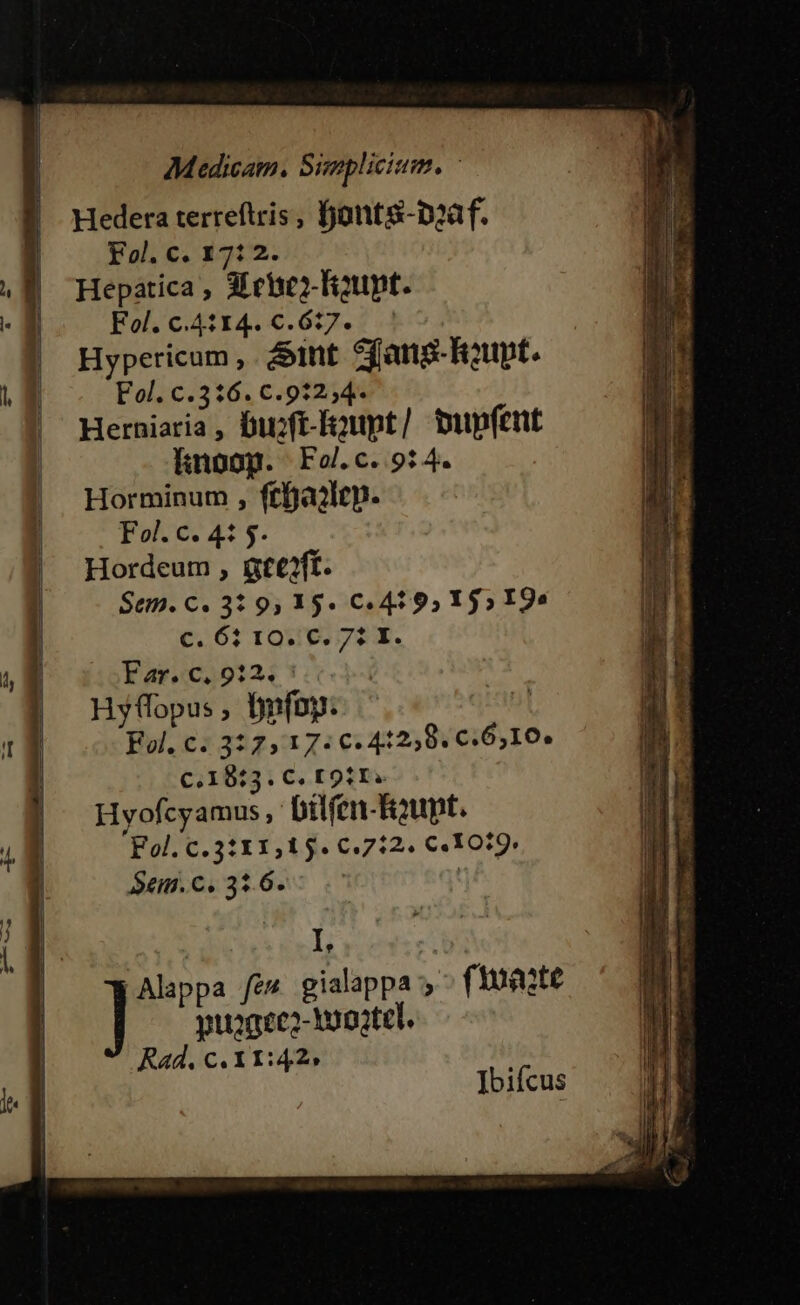 Medicam. Simplicium.
Hedera terreſtris, honts-draf.
Fol. c. 17:2.
Hepatica, Lever-krupt.
Fol. c.4:14. c.6:7.
Hypericum, Sint Jans-krupt.
Fol. c.3:6. c.9:2,4.
Herniaria, burſt-krupt/ dupſent
knoop. Fol. c. 9:4.
Horminum, ſcharlep.
Fol. c. 4:5.
Hordeum, geerſt.
Sem. c. 3:9, 15. c.4:9, 15, 19.
c. 6:10. c. 7:1.
Far. c. 9:2.
Hyſſopus, hpſop.
Fol. c. 3:7, 17. c. 4:2,8. c.6,10.
c.18:3. c. 19:1.
Hyoſcyamus, bilſen-krupt.
Fol. c.3:11,15. c.7:2. c.10:9.
Sem. c. 3:6.
I.
JAlappa ſeu gialappa, ſwarte
purgeer-wortel.
Rad. c.11:42.
Ibiſcus